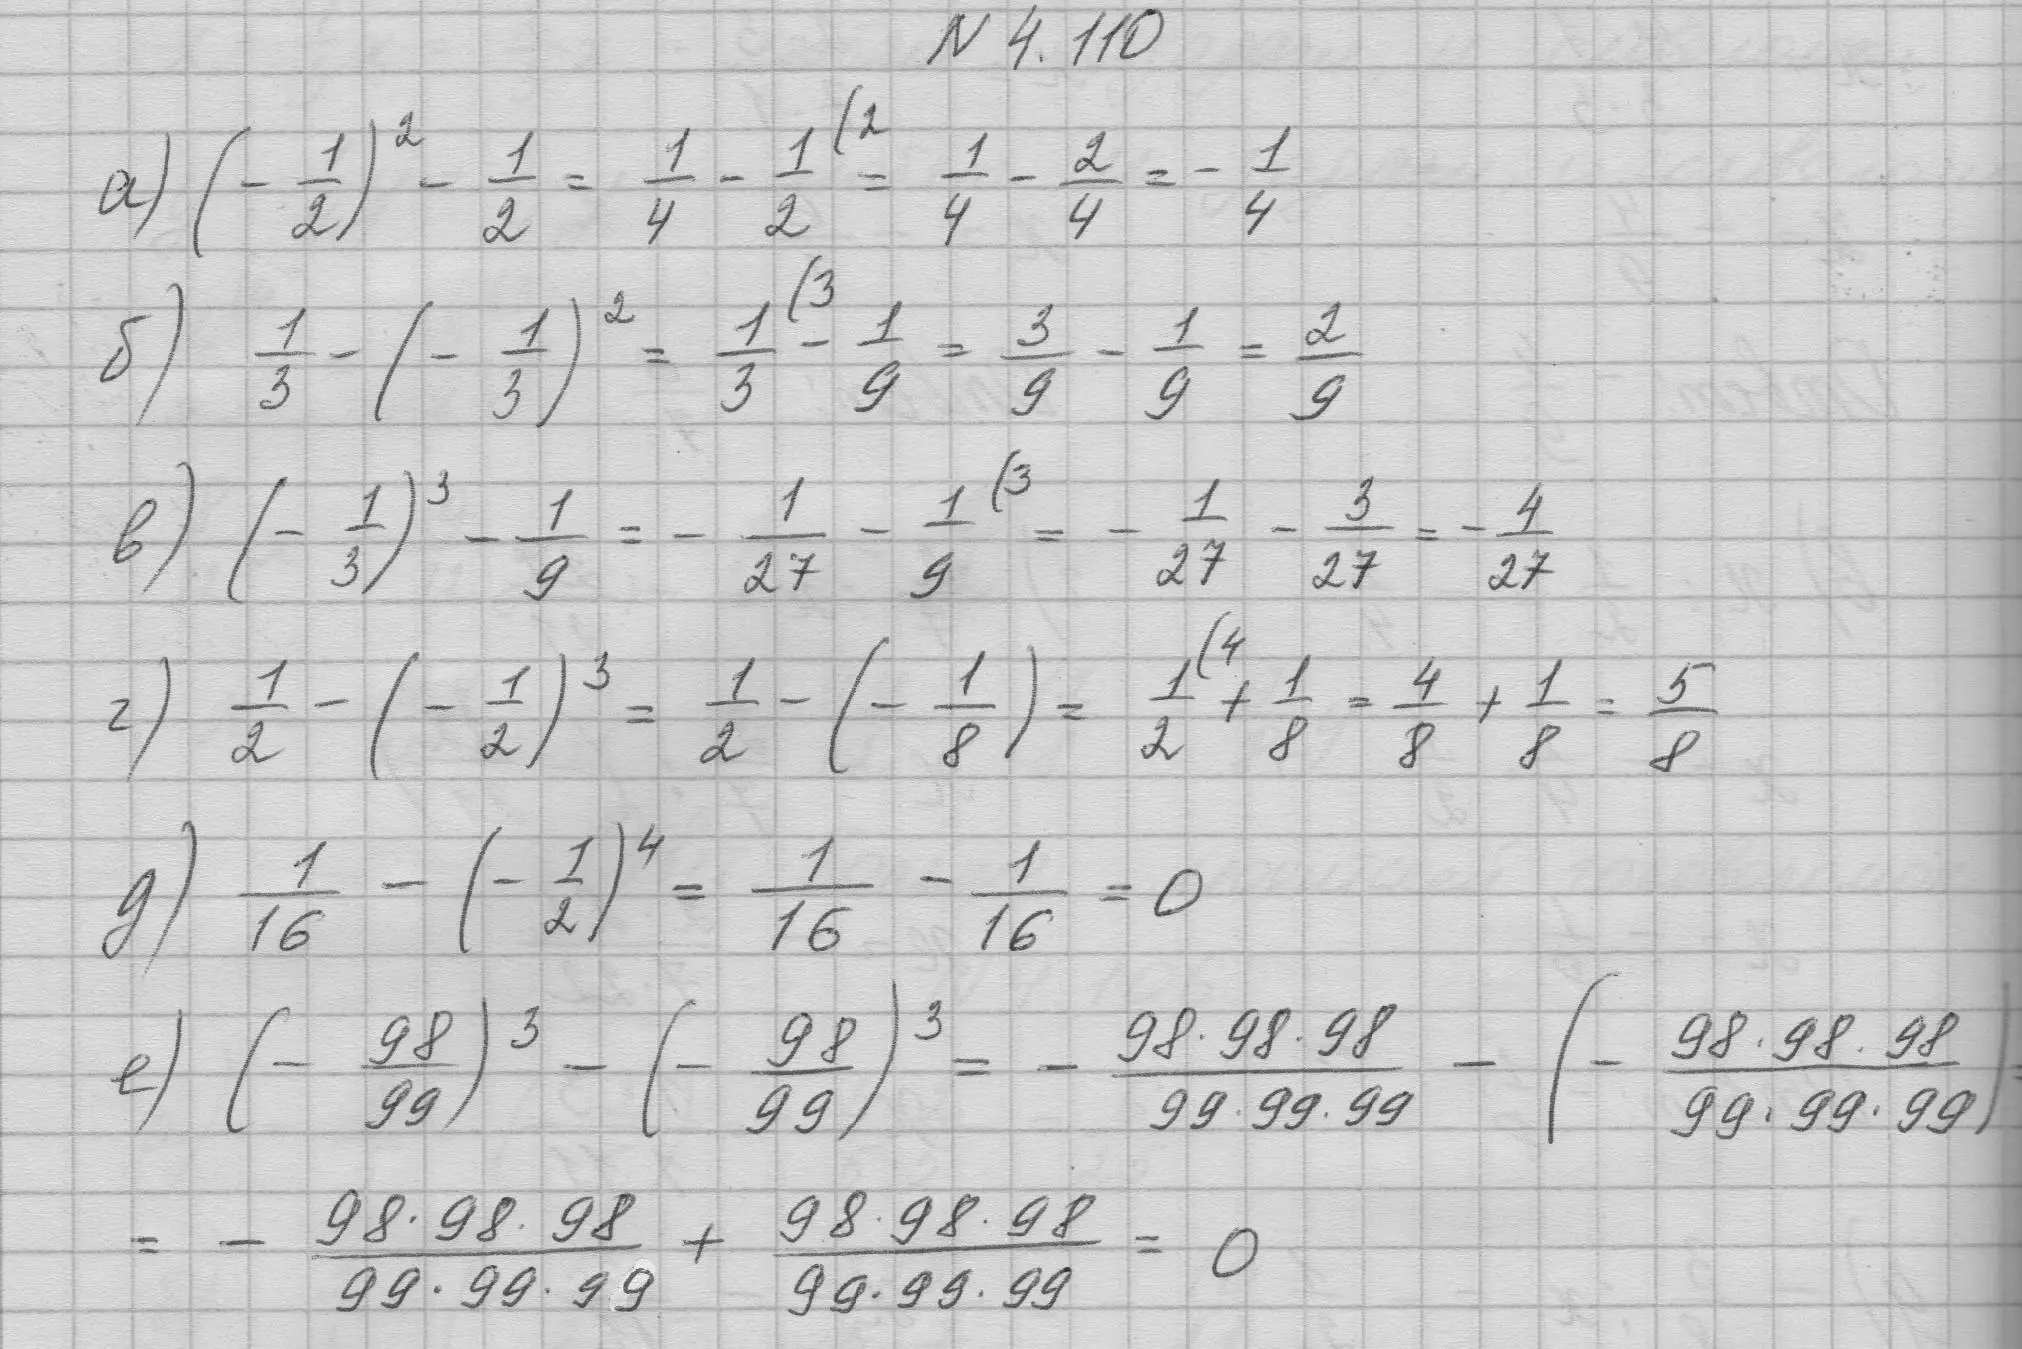 N 4.110
а) (- 1/2)² - 1/2 = 1/4 - 1/2 (2 = 1/4 - 2/4 = - 1/4
б) 1/3 - (- 1/3)² = 1/3 (3 - 1/9 = 3/9 - 1/9 = 2/9
в) (- 1/3)³ - 1/9 = - 1/27 - 1/9 (3 = - 1/27 - 3/27 = - 4/27
г) 1/2 - (- 1/2)³ = 1/2 - (- 1/8) = 1/2 (4 + 1/8 = 4/8 + 1/8 = 5/8
д) 1/16 - (- 1/2)⁴ = 1/16 - 1/16 = 0
е) (- 98/99)³ - (- 98/99)³ = - 98·98·98/99·99·99 - (- 98·98·98/99·99·99) =
= - 98·98·98/99·99·99 + 98·98·98/99·99·99 = 0